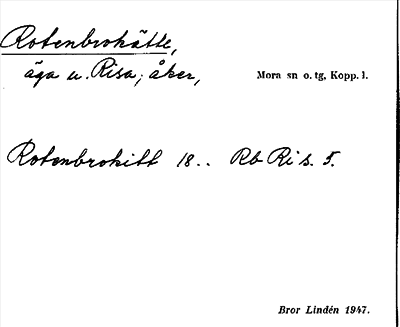 Rotenbrohätte,
äga u. Risa; åker, Mora sn o. tg, Kopp. l.
Rotenbrohitt 18.. Rb Ri s. 5.
Bror Lindén 1947.